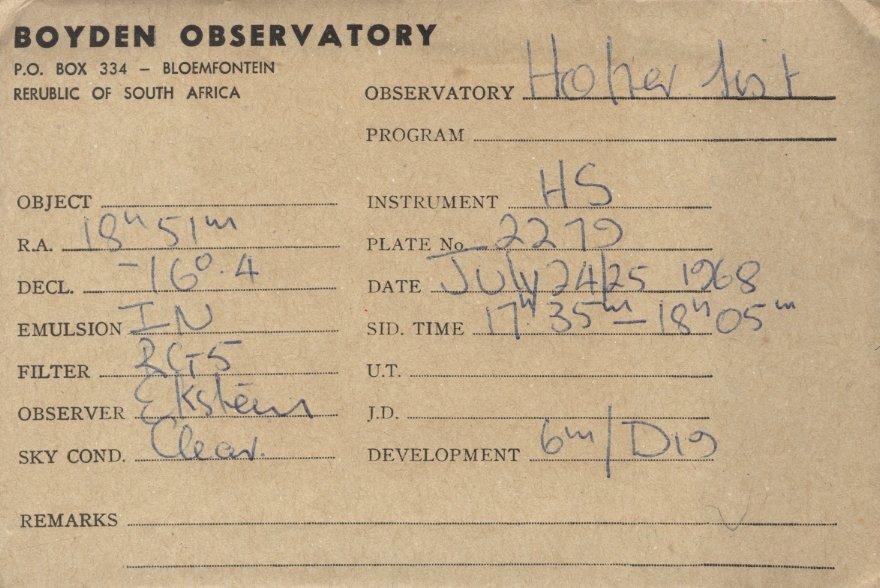 BOYDEN OBSERVATORY
P.O. BOX 334 – BLOEMFONTEIN
RERUBLIC OF SOUTH AFRICA
OBSERVATORY Hoher List
PROGRAM
OBJECT
R.A. 18h 51m
DECL. -16°.4
EMULSION IN
FILTER RG5
OBSERVER Ekstein
SKY COND. Clear.
INSTRUMENT HS
PLATE No. 2279
DATE July 24/25 1968
SID. TIME 17h 35m – 18h 05m
U.T.
J.D.
DEVELOPMENT 6m/D19
REMARKS